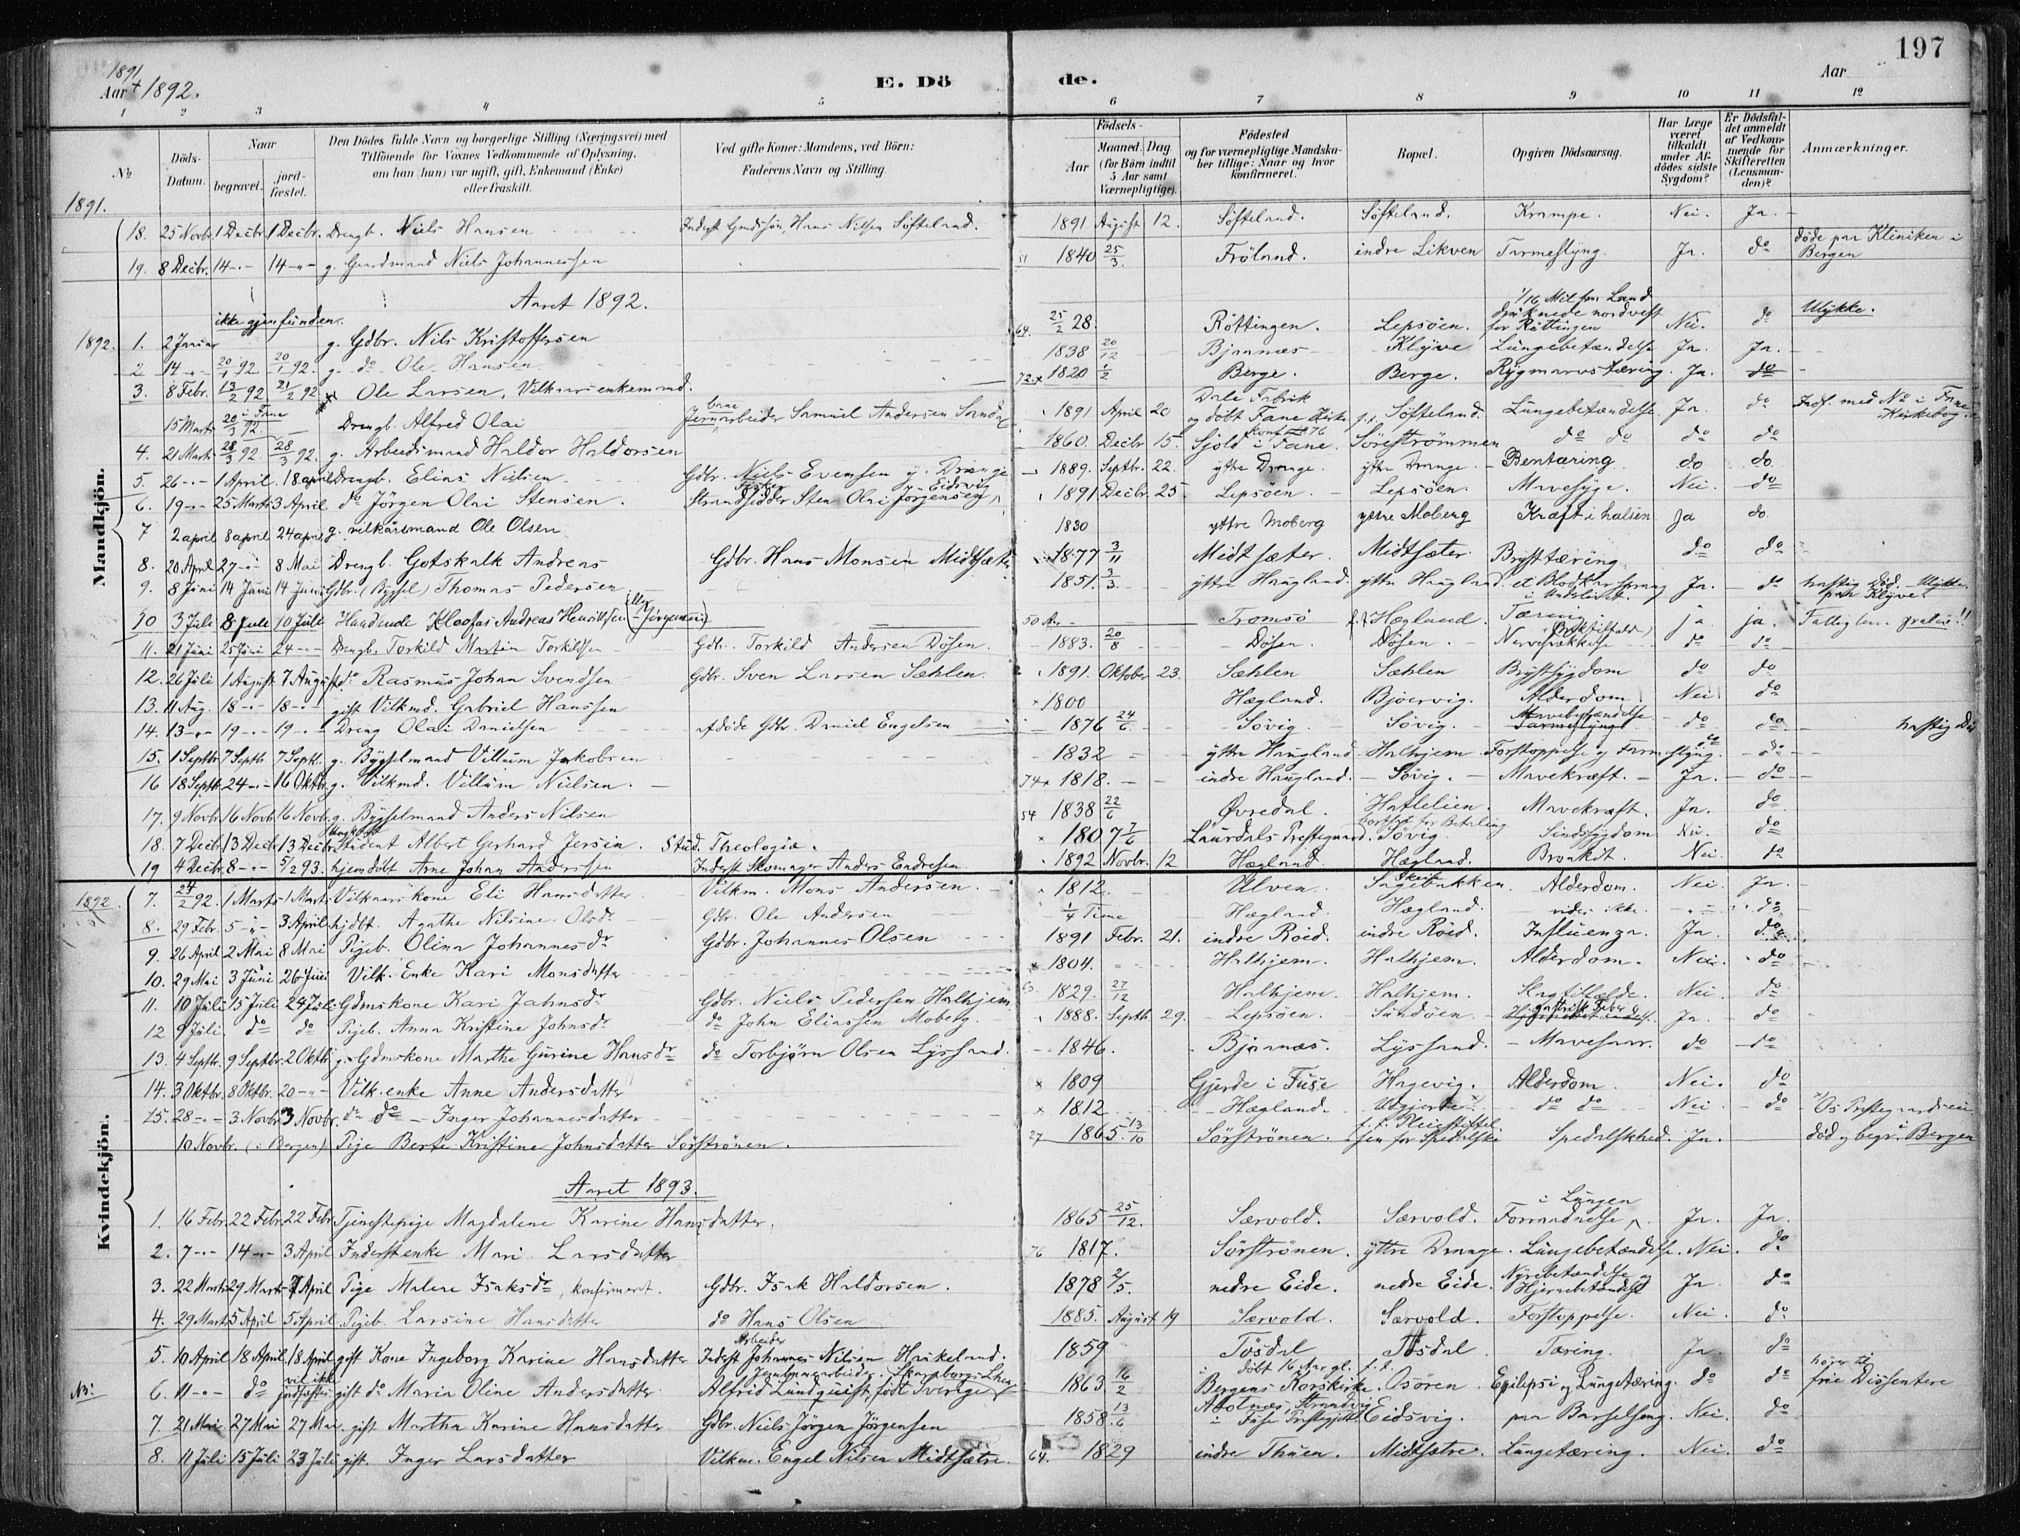 197
1891
Aar + 1892.
E. Dö de.
Aar
1 2 3 4 5 6 7 8 9 10 11 12
№
Döds-Datum.
Naar
begravet.
jordfæstet.
Den Dödes fulde Navn og borgerlige Stilling (Næringsvei) med
Tilföiende for Voxnes Vedkommende af Oplysning,
om han (hun) var ugift, gift, Enkemand (Enke)
eller fraskilt.
Ved gifte Koner: Mandens, ved Börn:
Faderens Navn og Stilling.
Födsels-
Aar
Maaned. Dag.
(for Börn indtil
5 Aar samt
Værnepligtige).
Födested
og for værnepligtige Mandskaber tillige: Naar og hvor
konfirmeret.
Bopæl.
Opgiven Dödsaarsag.
Har Læge
været
tilkaldt
under Afdödes sidste
Sygdom?
Er Dödsfaldet anmeldt
af Vedkommende for
Skifteretten
(Lensmanden)?
Anmærkninger.
1891.
18. 25 Novbr. 1 Decbr. 1 Decbr. Drengb. Niels Hansen Inderst Gmdssøn, Hans Nilsen Søfteland. 1891 August 12. Søfteland. Søfteland. Krampe. Nei. Ja.
19. 8 Decbr. 14 14 g. Gaardmand Niels Johannessen 51 1840 25/3. Fröland. indre Likven Tarmeslyng. Ja. do døde paa Kliniken i Bergen
Aaret 1892.
1892. 1. 2 Januar ikke gjenfunden. g. Gdbr. Nils Kristoffersen 64. 25/2 28. Röttingen. Lepsöen. 1/16 Mil fra Land druknede nordvest for Röttingen Nei. do Ulykke.
2 14 20/1 92 20/1 92. g. do Ole Hansen 1838 20/12 Bjørnnæs Klyve Lungebetændelse Ja. Ja.
3. 8 Febr. 13/2 92 21/2 92 Ole Larsen, Vilkaarsenkemand. 72 1820 1/2 Berge. Berge. Rygmarvstæring. Ja. do
15 Marts 20/3 92. i Fane Drengb. Alfred Olai Jernbanearbeider Samuel Andersen 1891 April 20 Dale Fabrik og döbt Fane Kirke f.t. Søfteland. Lungebetændelse. Ja. do Indf. med No i Fane Kirkebog
4. 21 Marts 28/3 92 28/3 92. g. Arbeidsmand Haldor Haldorsen 1860. Decbr 15. Sjold i Fane. Sørestrømmen do do do do
5. 26 1 April. 18 april Drengb. Elias Nielsen Gdbr. Niels Evensen y. Drange 1889. Septbr. 22. yttre Drange. yttre Drange. Bentæring. do do.
6. 19 25 Marts 3 April do Jörgen Olai Stensen. Strandsidder Sten Olai Jörgensen Eidsvig 1891 Decbr. 25. Lepsöen. Lepsöen Mavesyge. Nei. do
7 2 april 8 april 24 april g. vilkårsmand Ole Olsen 1830 yttre Moberg yttre Moberg Kræft i halsen Ja do.
8. 20 April 27 8 Mai Drengb. Gotskalk Andreas Gdbr. Hans Monsen Midtsæter 1877 3/11 Midtsæter. Midtsæter. Brysttæring. do do
9. 8 Juni 14 Juni 14 Juni Gdbr. (Bygsel) Thomas Pedersen 1851. 3/3. yttre Haugland. yttre Haugland. et Blodkar sprang i Underlivet. Ja. do hastig Død. Ulykke paa Klyve.
10 3 Juli 8 Juli 10 Juli Andreas Henriksen (eller Jörgensen) 50 Aar Tromsö f.t. Hægland. Tæring ja ja. gratis!!
11. 21 Juni 25 Juni 24 Drengb. Torkild Martin Torkildsen Gdbr. Torkild Andersen Døsen. 1883. 20/8 Døsen. Døsen. do do
12. 26 Juli 1 August 7 August do Rasmus Johan Svendsen Gdbr. Sven Larsen Sæhlen. 1891. Oktober 23. Sæhlen Sæhlen Brystsygdom do do
13. 11 Aug. 18 18 gift Vilkmd. Gabriel Hanssen 1800 Hægland. Bjørvig. Alderdom Nei do
14. 13 19 19 Dreng Olai Danielsen Afdøde Gdbr. Daniel Engelsen 1876 24/6. Søvig. Søvig. Mavebetændelse do do. hastig Död
15. 1 Septbr. 7 Septb. 7 Septb. g. Bygselmand Villum Jakobsen 1832 yttre Haugland Halhjem Forstoppelse og Tarmslyng do do
16 18 Septb. 24 16 Oktbr. g. Vilkmd. Villum Nielsen. 74 1818. indre Haugland. Søvig. Mavekræft. Ja. do
17. 9 Novbr. 16 Novb. 16 Novbr. g. Bygselmand Anders Nilsen 54 1838 22/6 Øvredal. Hatlelien. Mavekræft. Ja. do
18. 7 Decb. 13 Decb. 13 Decbr. Student Albert Gerhard Jersin. Stud. Theologiæ. 1807 7/6 Laurdals Præstegaard. bortsat for Betaling Søvig. Sindssygdom Nei. do
19 4 Decbr. 8 5/2 93. hjemdöbt Arne Johan Andersen Inderst Skomager Anders Endresen 1892 Novbr. 12 Hægland. Hægland. Bronkit. Nei do
Mandkjön.
1892. 7. 24/2 92. 1 Marts 1 Marts Vilkaarskone Eli Hansdatter Vilkm. Mons Andersen. 1812. Ulven. Alderdom. Nei. Ja.
8. 29 Febr. 5 3 April hjdbt. Agathe Nilsine Olsdr Gdbr. Ole Andersen 1/4 Time Hægland. Hægland. vides ikke. do
9. 26 April 2 Mai 8 Mai Pigeb. Olina Johannesdr Gdbr. Johannes Olsen 1891 Febr. 21. indre Röid. indre Röid. Influenza. Ja. do
10. 29 Mai 3 Juni 26 Juni Vilk. Enke Kari Monsdatter 1804. Halhjem. Halhjem. Alderdom. Nei. do
11. 10 Juli 15 Juli 24 Juli Gdmskone Kari Jahnsdr Gdbr. Niels Pedersen Halhjem 63 1829. 27/12 Halhjem. Halhjem. Slagtilfælde. Nei. do
12 9 Juli do do Pigeb. Anna Kristine Johnsdr do John Eliassen Moberg. 1888. Septb. 29. Lepsöen. Sundöen. gastrisk Feber Ja. do
13. 4 Septbr. 9 Septbr. 2 Oktbr. g. Gdmskone Marthe Gurine Hansdr do Torbjørn Olsen Lyssand. 1846. Bjørnæs. Lyssand. Mavesaar. do do
14. 3 Oktbr. 8 Oktbr. 20 Vilk. enke Anne Andersdatter 1809 Gjerde i Fuse Hagevig. Alderdom. Nei. do
15. 28 3 Novbr. 3 Novbr. do do Inger Johannesdatter 1812. Hægland. do do Nei do Os Præstegaardseie
10 Novbr. (i Bergen) Pige Berte Kristine Johnsdatter Sørstrønen. 27 1865 13/10 Sørstrønen. f.t. Pleiestiftelsen for Spedalske Spedalskhed. Ja. död og begr. i Bergen
Aaret 1893.
1. 16 Febr. 22 Febr. 22 Febr. Tjenestepige Magdalene Karine Hansdatter. 1865 25/12. Særvold. Særvold. Forraadnelse i Lungen. Ja. Ja.
2. 7 14 3 April Inderstenke Mari Larsdatter 76 1817. Sørströnen. yttre Drange. Lungebetændelse. Nei. do
3. 22 Marts 29 Marts 4 April Pige Malene Isaksdr, konfirmeret. Gdbr. Isak Haldorsen. 1878 2/5. nedre Eide. nedre Eide. Nyrebetændelse og Hjernebetændelse Ja do
4. 29 Marts 5 April 5 April Pigeb. Larsine Hansdatter do Hans Olsen 1885. August 19 Særvold. Særvold. Forstoppelse. Nei. do
5. 10 April 18 April 18 April gift Kone Ingeborg Karine Hansdatter Inderst Arbeider Johannes Nilsen Haukeland. 1859 Tösdal Tösdal Tæring. Ja do
NB: 6. 11 do vil ikke jordfæstes gift do Maria Oline Andersdatter. Jernbanearbeider Alfrid Lundquist, født Sverige 1863 16/2 döbt 16 Aar gl. i Bergens Korskirke. f.t. Osören. Epilepsi og Lungetæring. do do hører til frie Dissentere
7. 21 Mai 27 Mai 27 Mai. gift Martha Karine Hansdatter Gdbr. Niels Jörgen Jörgensen 1858. 13/6 i Fuse Præstegjæld Eidsvig. paa Barselseng. Nei. do
8. 11 Juli 15 Juli 23 Juli gift. Inger Larsdatter Vilkm. Engel Nilsen Midtsætre. 64. 1829 indre Thuen. Midtsætre. Lungetæring. Nei. do
Kvindekjön.